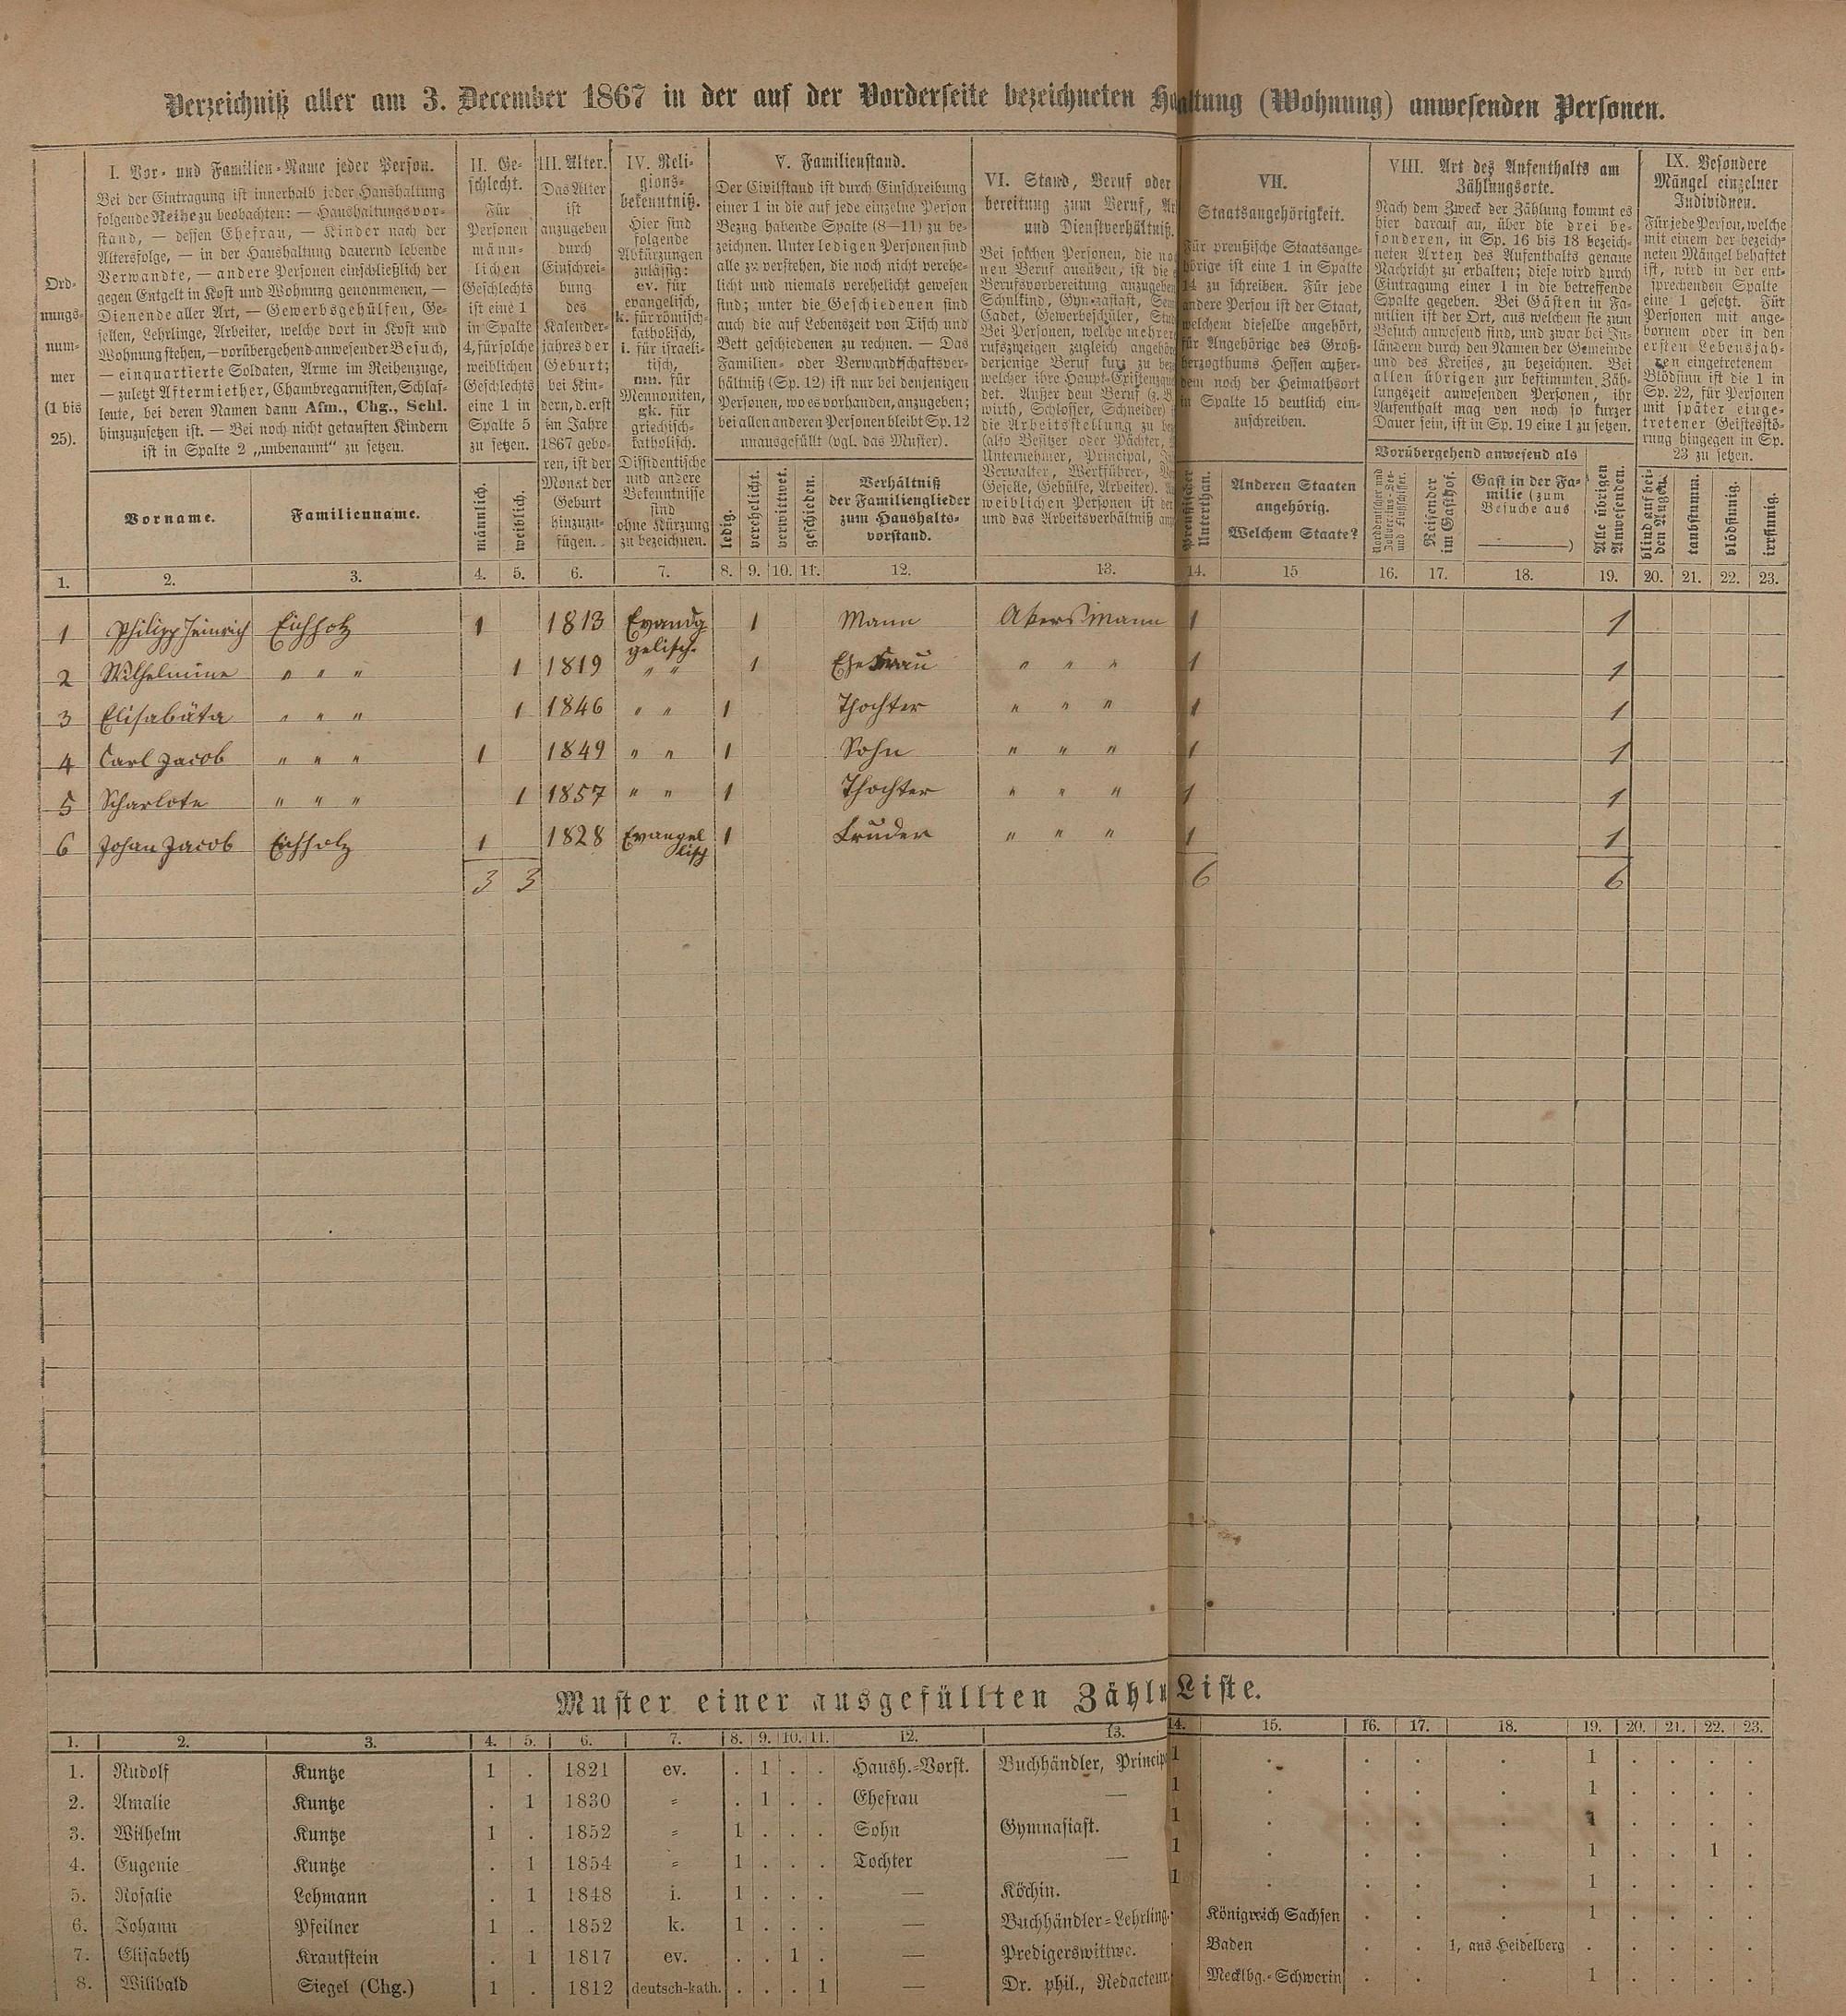 Verzeichniß aller am 3. December 1867 in der auf der Vorderseite bezeichneten Haltung (Wohnung) anwesenden Personen.
Ord-
nungs-
num-
mer
(1 bis
25).
I. Vor- und Familien-Name jeder Person.
Bei der Eintragung ist innerhalb jeder Haushaltung
folgende Reihe zu beobachten: — Haushaltungsvor-
stand, — dessen Ehefrau, — Kinder nach der
Altersfolge, — in der Haushaltung dauernd lebende
Verwandte, — andere Personen einschließlich der
gegen Entgelt in Kost und Wohnung genommenen, —
Dienende aller Art, — Gewerbsgehülfen, Ge-
sellen, Lehrlinge, Arbeiter, welche dort in Kost und
Wohnung stehen, — vorübergehend anwesender Besuch,
— einquartierte Soldaten, Arme im Reihenzuge,
— zuletzt Aftermiether, Chambregarnisten, Schlaf-
leute, bei deren Namen dann Afm., Chg., Schl.
hinzuzusetzen ist. — Bei noch nicht getauften Kindern
ist in Spalte 2 „unbenannt“ zu setzen.
Vorname.
Familienname.
II. Ge-
schlecht.
Für
Personen
männ-
lichen
Geschlechts
ist eine 1
in Spalte
4, für solche
weiblichen
Geschlechts
eine 1 in
Spalte 5
zu setzen.
männlich.
weiblich.
III. Alter.
Das Alter
ist
anzugeben
durch
Einschrei-
bung
des
Kalender-
jahres der
Geburt;
bei Kin-
dern, d. erst
im Jahre
1867 gebo-
ren, ist der
Monat der
Geburt
hinzuzu-
fügen.
IV. Reli-
gions-
bekenntniß.
Hier sind
folgende
Abkürzungen
zulässig:
ev. für
evangelisch,
k. für römisch-
katholisch,
i. für israeli-
tisch,
mn. für
Mennoniten,
gk. für
griechisch-
katholisch.
Dissidentische
und andere
Bekenntnisse
sind
ohne Kürzung
zu bezeichnen.
V. Familienstand.
Der Civilstand ist durch Einschreibung
einer 1 in die auf jede einzelne Person
Bezug habende Spalte (8—11) zu be-
zeichnen. Unter ledigen Personen sind
alle zu verstehen, die noch nicht verehe-
licht und niemals verehelicht gewesen
sind; unter die Geschiedenen sind
auch die auf Lebenszeit von Tisch und
Bett geschiedenen zu rechnen. — Das
Familien- oder Verwandtschaftsver-
hältniß (Sp. 12) ist nur bei denjenigen
Personen, wo es vorhanden, anzugeben;
bei allen anderen Personen bleibt Sp. 12
unausgefüllt (vgl. das Muster).
ledig.
verehelicht.
verwittwet.
geschieden.
Verhältniß
der Familienglieder
zum Haushalts-
vorstand.
VI. Stand, Beruf oder
bereitung zum Beruf,
und Dienstverhältniß.
Bei solchen Personen, die
nen Beruf ausüben, ist die
Berufsvorbereitung anzugeben
Schulkind, Gymnasiast,
Cadet, Gewerbeschüler,
Bei Personen, welche mehrere
rufszweigen zugleich
derjenige Beruf kurz zu
welcher ihre Haupt-
det. Außer dem Beruf (z. B.
wirth, Schlosser, Schneider)
die Arbeitsstellung zu
(also Besitzer oder Pächter,
Unternehmer, Principal,
Verwalter, Werkführer,
Geselle, Gehülfe, Arbeiter).
weiblichen Personen ist
und das Arbeitsverhältniß
VII.
Staatsangehörigkeit.
Für preußische Staatsange-
hörige ist eine 1 in Spalte
14 zu schreiben. Für jede
andere Person ist der Staat,
welchem dieselbe angehört,
für Angehörige des Groß-
herzogthums Hessen außer-
dem noch der Heimathsort
in Spalte 15 deutlich ein-
zuschreiben.
Preußischer
Unterthan.
Anderen Staaten
angehörig.
Welchem Staate?
VIII. Art des Aufenthalts am
Zählungsorte.
Nach dem Zweck der Zählung kommt es
hier darauf an, über die drei be-
sonderen, in Sp. 16 bis 18 bezeich-
neten Arten des Aufenthalts genaue
Nachricht zu erhalten; diese wird durch
Eintragung einer 1 in die betreffende
Spalte gegeben. Bei Gästen in Fa-
milien ist der Ort, aus welchem sie zum
Besuch anwesend sind, und zwar bei In-
ländern durch den Namen der Gemeinde
und des Kreises, zu bezeichnen. Bei
allen übrigen zur bestimmten Zäh-
lungszeit anwesenden Personen, ihr
Aufenthalt mag von noch so kurzer
Dauer sein, ist in Sp. 19 eine 1 zu setzen.
Vorübergehend anwesend als
Norddeutscher und
Zollvereins-See-
und Flußschiffer.
Reisender
im Gasthof.
Gast in der Fa-
milie (zum
Besuche aus
)
Alle übrigen
Anwesenden.
IX. Besondere
Mängel einzelner
Individuen.
Für jede Person, welche
mit einem der bezeich-
neten Mängel behaftet
ist, wird in der ent-
sprechenden Spalte
eine 1 gesetzt. Für
Personen mit ange-
bornem oder in den
ersten Lebensjah-
ren eingetretenem
Blödsinn ist die 1 in
Sp. 22, für Personen
mit später einge-
tretener Geistesstö-
rung hingegen in Sp.
23 zu setzen.
blind auf bei-
den Augen.
taubstumm.
blödsinnig.
irrsinnig.
1. 2. 3. 4. 5. 6. 7. 8. 9. 10. 11. 12. 13. 14. 15 16. 17. 18. 19. 20. 21. 22. 23.
1 Philipp Heinrich Eichholz 1 1813 Evandg gelisch. 1 Mann Akersmann 1 1
2 Wilhelmine " " " 1 1819 " " 1 Ehefrau " " " 1 1
3 Elisabäta " " " 1 1846 " " 1 Thochter " " " 1 1
4 Carl Jacob " " " 1 1849 " " 1 Sohn " " " 1 1
5 Scharlote " " " 1 1857 " " 1 Thochter " " " 1 1
6 Johan Jacob Eichholz 1 1828 Evangel lisch 1 Bruder " " " 1 1
3 3 6 6
Muster einer ausgefüllten Zähl Liste.
1. 2. 3. 4. 5. 6. 7. 8. 9. 10. 11. 12. 13. 14. 15. 16. 17. 18. 19. 20. 21. 22. 23.
1. Rudolf Kuntze 1 . 1821 ev. . 1 . . Haush.-Vorst. Buchhändler, Princip 1 . . . . 1 . . . .
2. Amalie Kuntze . 1 1830 " . 1 . . Ehefrau — 1 . . . . 1 . . . .
3. Wilhelm Kuntze 1 . 1852 " 1 . . . Sohn Gymnasiast. 1 . . . . 1 . . . .
4. Eugenie Kuntze . 1 1854 " 1 . . . Tochter — 1 . . . . 1 . . 1 .
5. Rosalie Lehmann . 1 1848 i. 1 . . . — Köchin. 1 . . . . 1 . . . .
6. Johann Pfeilner 1 . 1852 k. 1 . . . — Buchhändler-Lehrling. Königreich Sachsen . . . 1 . . . .
7. Elisabeth Krautstein . 1 1817 ev. . . 1 . — Predigerswittwe. Baden . . 1, aus Heidelberg . . . . .
8. Wilibald Siegel (Chg.) 1 . 1812 deutsch-kath. . . . 1 — Dr. phil., Redacteur. Mecklbg.-Schwerin . . . 1 . . . .